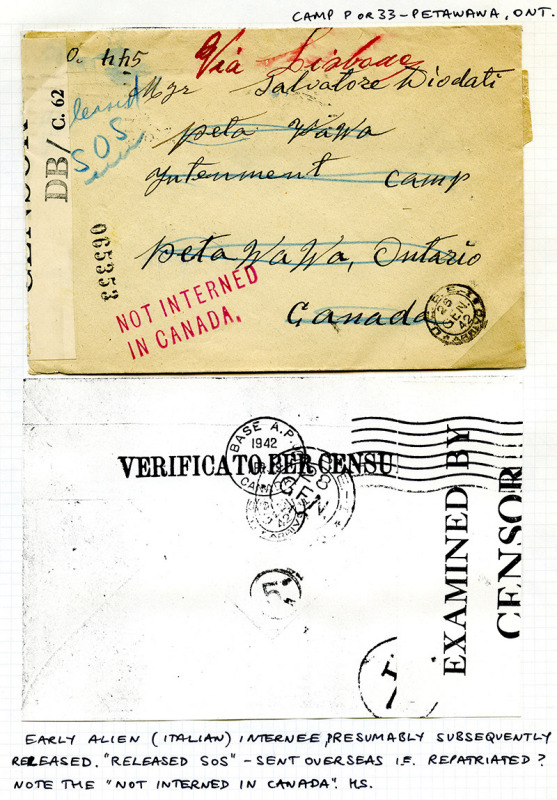 CAMP P OR 33 – PETAWAWA, ONT.
O. 445
Via Lisbona
Mgr Salvatore Diodati
SOS
peta WaWa
Internment camp
petaWaWa, Ontario
Canada
DB/ C. 62
065353
NOT INTERNED
IN CANADA.
BASE A.P.O.
1942
VERIFICATO PER CENSU
EXAMINED BY
CENSOR
EARLY ALIEN (ITALIAN) INTERNEE, PRESUMABLY SUBSEQUENTLY
RELEASED. "RELEASED SOS" – SENT OVERSEAS I.E. REPATRIATED?
NOTE THE "NOT INTERNED IN CANADA". HS.